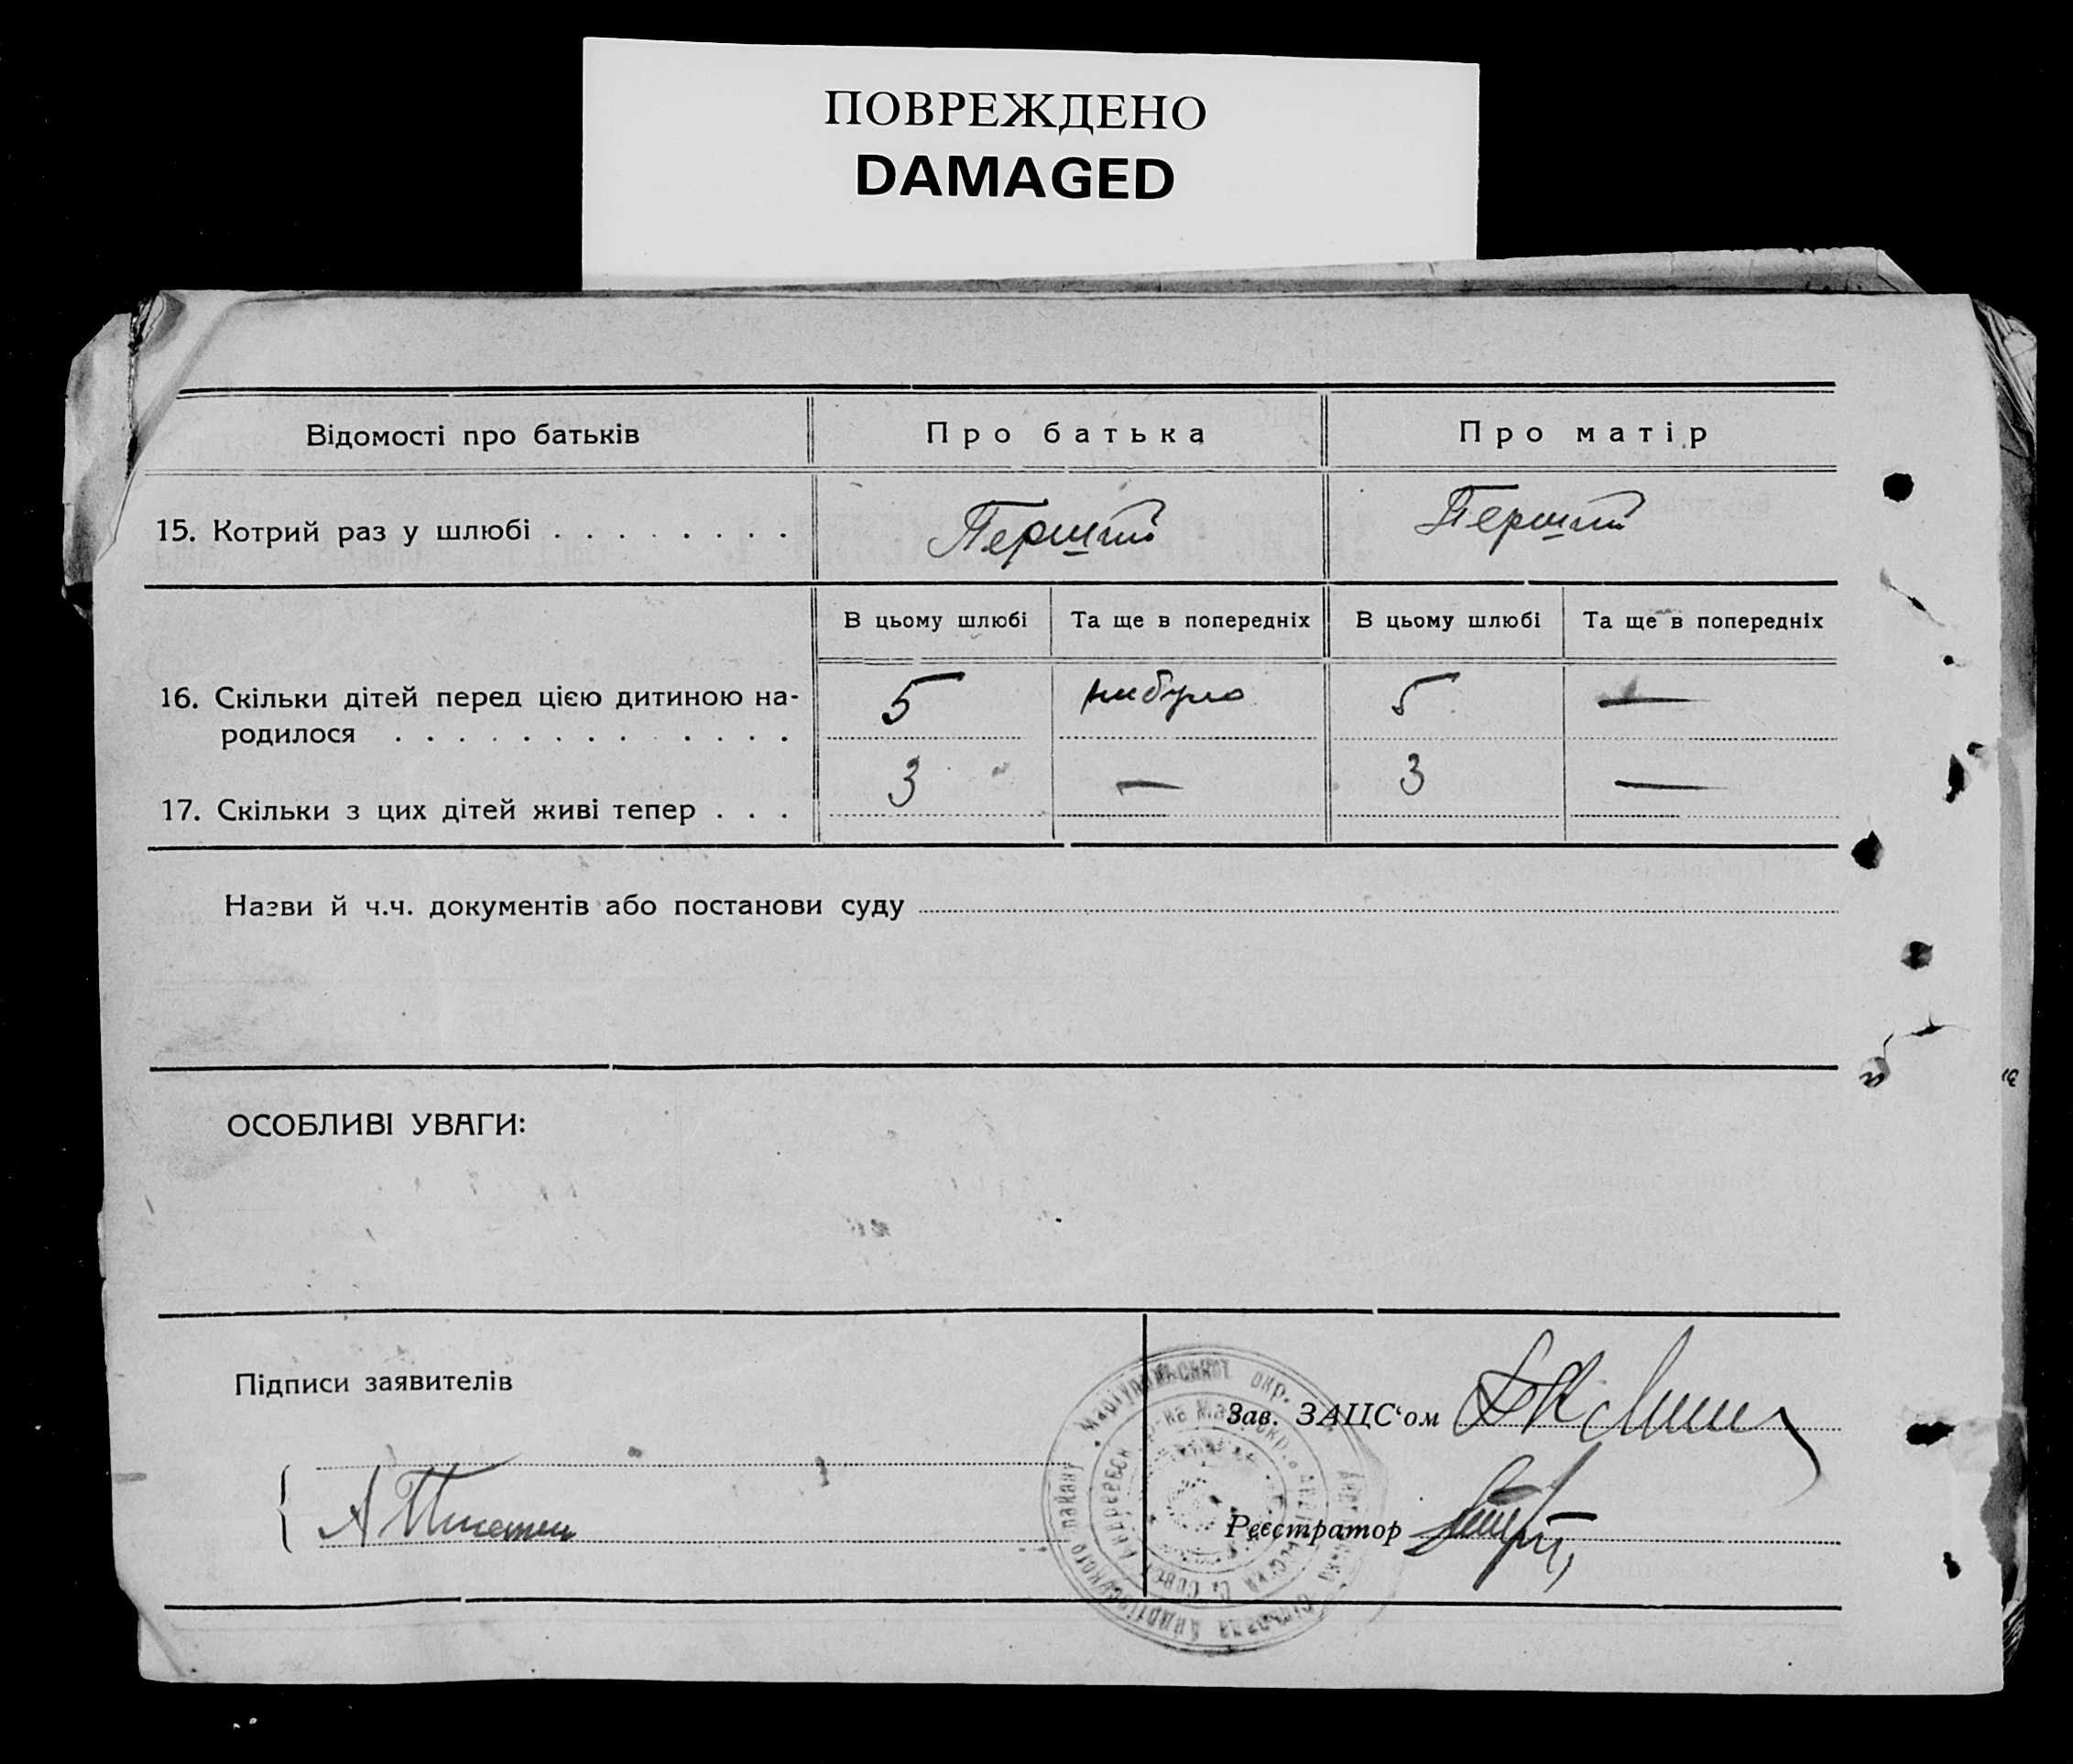 ПОВРЕЖДЕНО
DAMAGED
Відомості про батьків
Про батька
Про матір
15. Котрий раз у шлюбі . . . . . . . .
Перший
Перший
В цьому шлюбі
Та ще в попередніх
В цьому шлюбі
Та ще в попередніх
16. Скільки дітей перед цією дитиною на-
родилося . . . . . . . . . . . . .
5
нибуло
5
—
17. Скільки з цих дітей живі тепер . . .
3
—
3
—
Назви й ч.ч. документів або постанови суду
ОСОБЛИВІ УВАГИ:
Підписи заявителів
Зав. ЗАЦС‘ом
Реєстратор
Маріупольської окр.